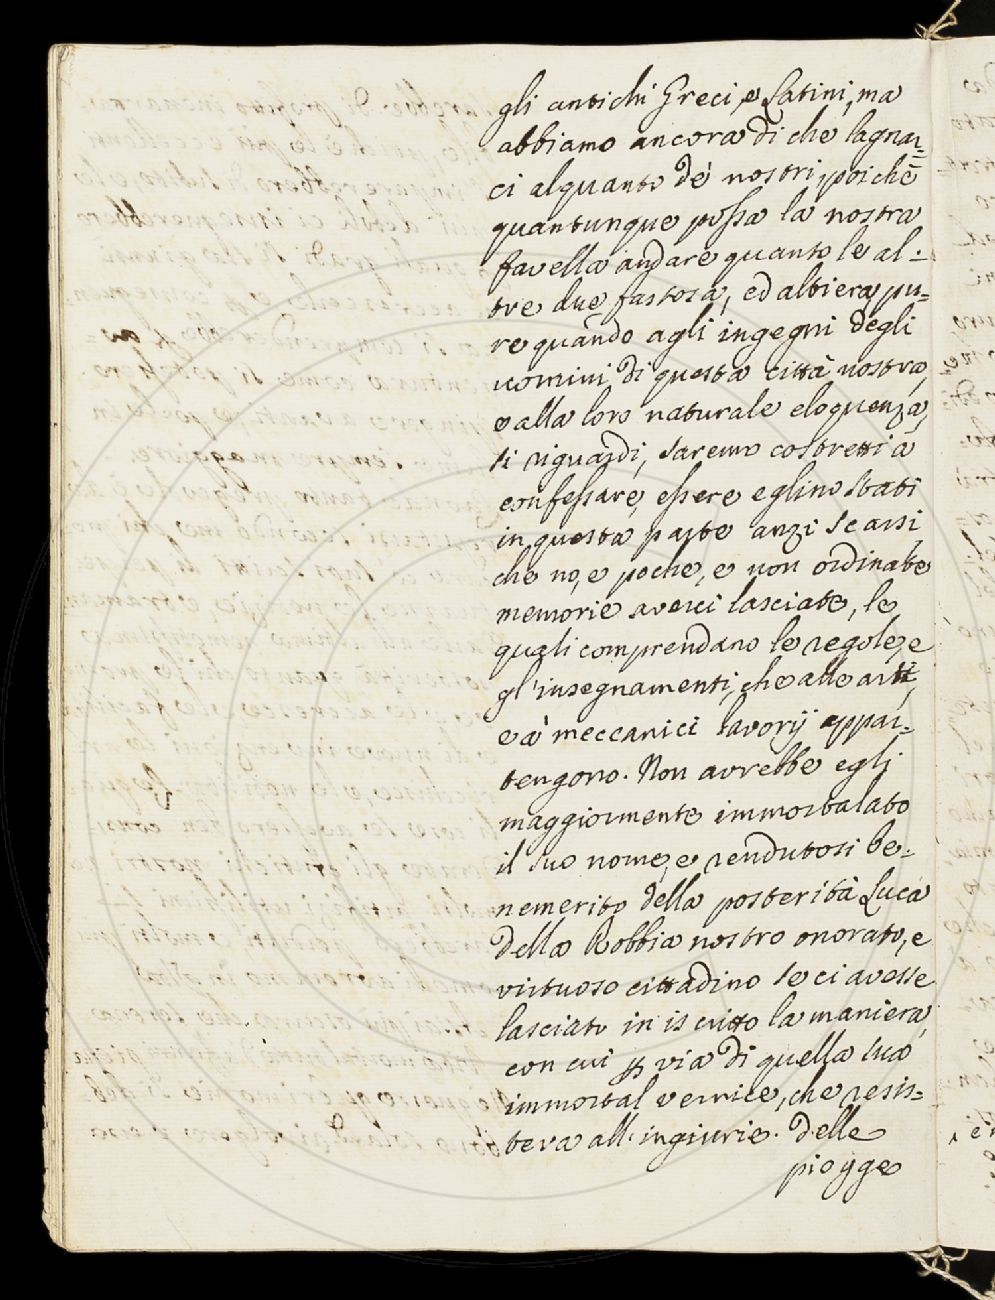 gli antichi Greci, e Latini, ma
abbiamo ancora di che lagnar=
ci alquanto de' nostri, poichè
quantunque possa la nostra
favella andare quanto le al=
tre due fastosa, ed altiera, pu=
re quando agli ingegni degli
uomini di questa città nostra,
e alla loro naturale eloquenza,
si riguardi, saremo costretti a
confessare, essere eglino stati
in questa parte anzi scarsi,
che no, e poche, e non ordinate
memorie averci lasciate, le
quali comprendano le regole, e
gl'insegnamenti, che alle arti,
e a' meccanici lavorij appar=
tengono. Non avrebbe egli
maggiormente immortalato
il suo nome, e rendutosi be=
nemerito della posterità Luca
della Robbia nostro onorato, e
virtuoso cittadino se ci avesse
lasciato in iscritto la maniera,
con cui via di quella sua
immortal vernice, che resis=
teva all'ingiurie delle
piogge